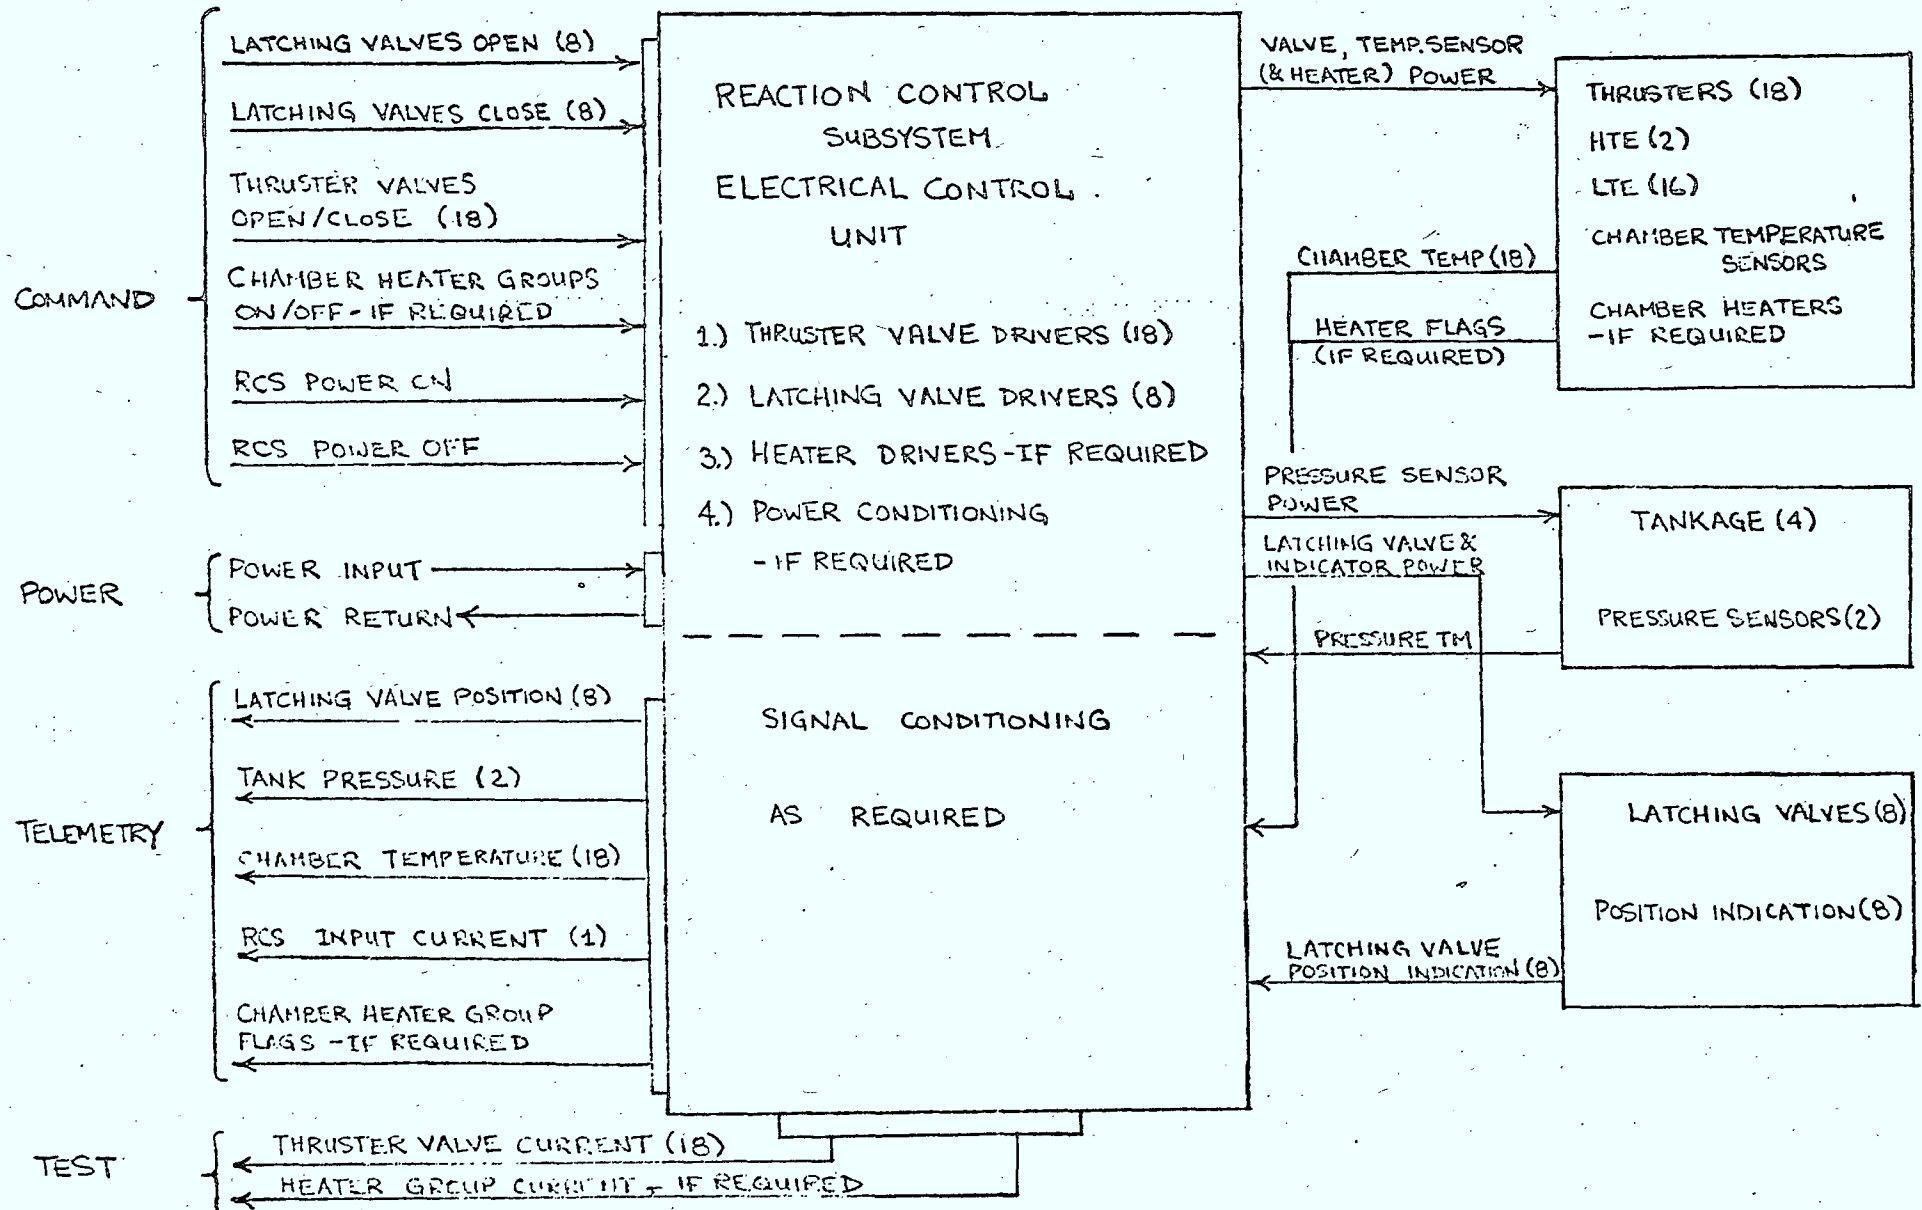 COMMAND
LATCHING VALVES OPEN (8)
LATCHING VALVES CLOSE (8)
THRUSTER VALVES
OPEN/CLOSE (18)
CHAMBER HEATER GROUPS
ON/OFF - IF REQUIRED
RCS POWER ON
RCS POWER OFF
POWER
POWER INPUT
POWER RETURN
TELEMETRY
LATCHING VALVE POSITION (8)
TANK PRESSURE (2)
CHAMBER TEMPERATURE (18)
RCS INPUT CURRENT (1)
CHAMBER HEATER GROUP
FLAGS - IF REQUIRED
TEST
THRUSTER VALVE CURRENT (18)
HEATER GROUP CURRENT - IF REQUIRED
REACTION CONTROL
SUBSYSTEM
ELECTRICAL CONTROL
UNIT
1.) THRUSTER VALVE DRIVERS (18)
2.) LATCHING VALVE DRIVERS (8)
3.) HEATER DRIVERS - IF REQUIRED
4.) POWER CONDITIONING
- IF REQUIRED
SIGNAL CONDITIONING
AS REQUIRED
VALVE, TEMP. SENSOR
(& HEATER) POWER
CHAMBER TEMP (18)
HEATER FLAGS
(IF REQUIRED)
PRESSURE SENSOR
POWER
LATCHING VALVE &
INDICATOR POWER
PRESSURE TM
LATCHING VALVE
POSITION INDICATION (8)
THRUSTERS (18)
HTE (2)
LTE (16)
CHAMBER TEMPERATURE
SENSORS
CHAMBER HEATERS
- IF REQUIRED
TANKAGE (4)
PRESSURE SENSORS (2)
LATCHING VALVES (8)
POSITION INDICATION (8)